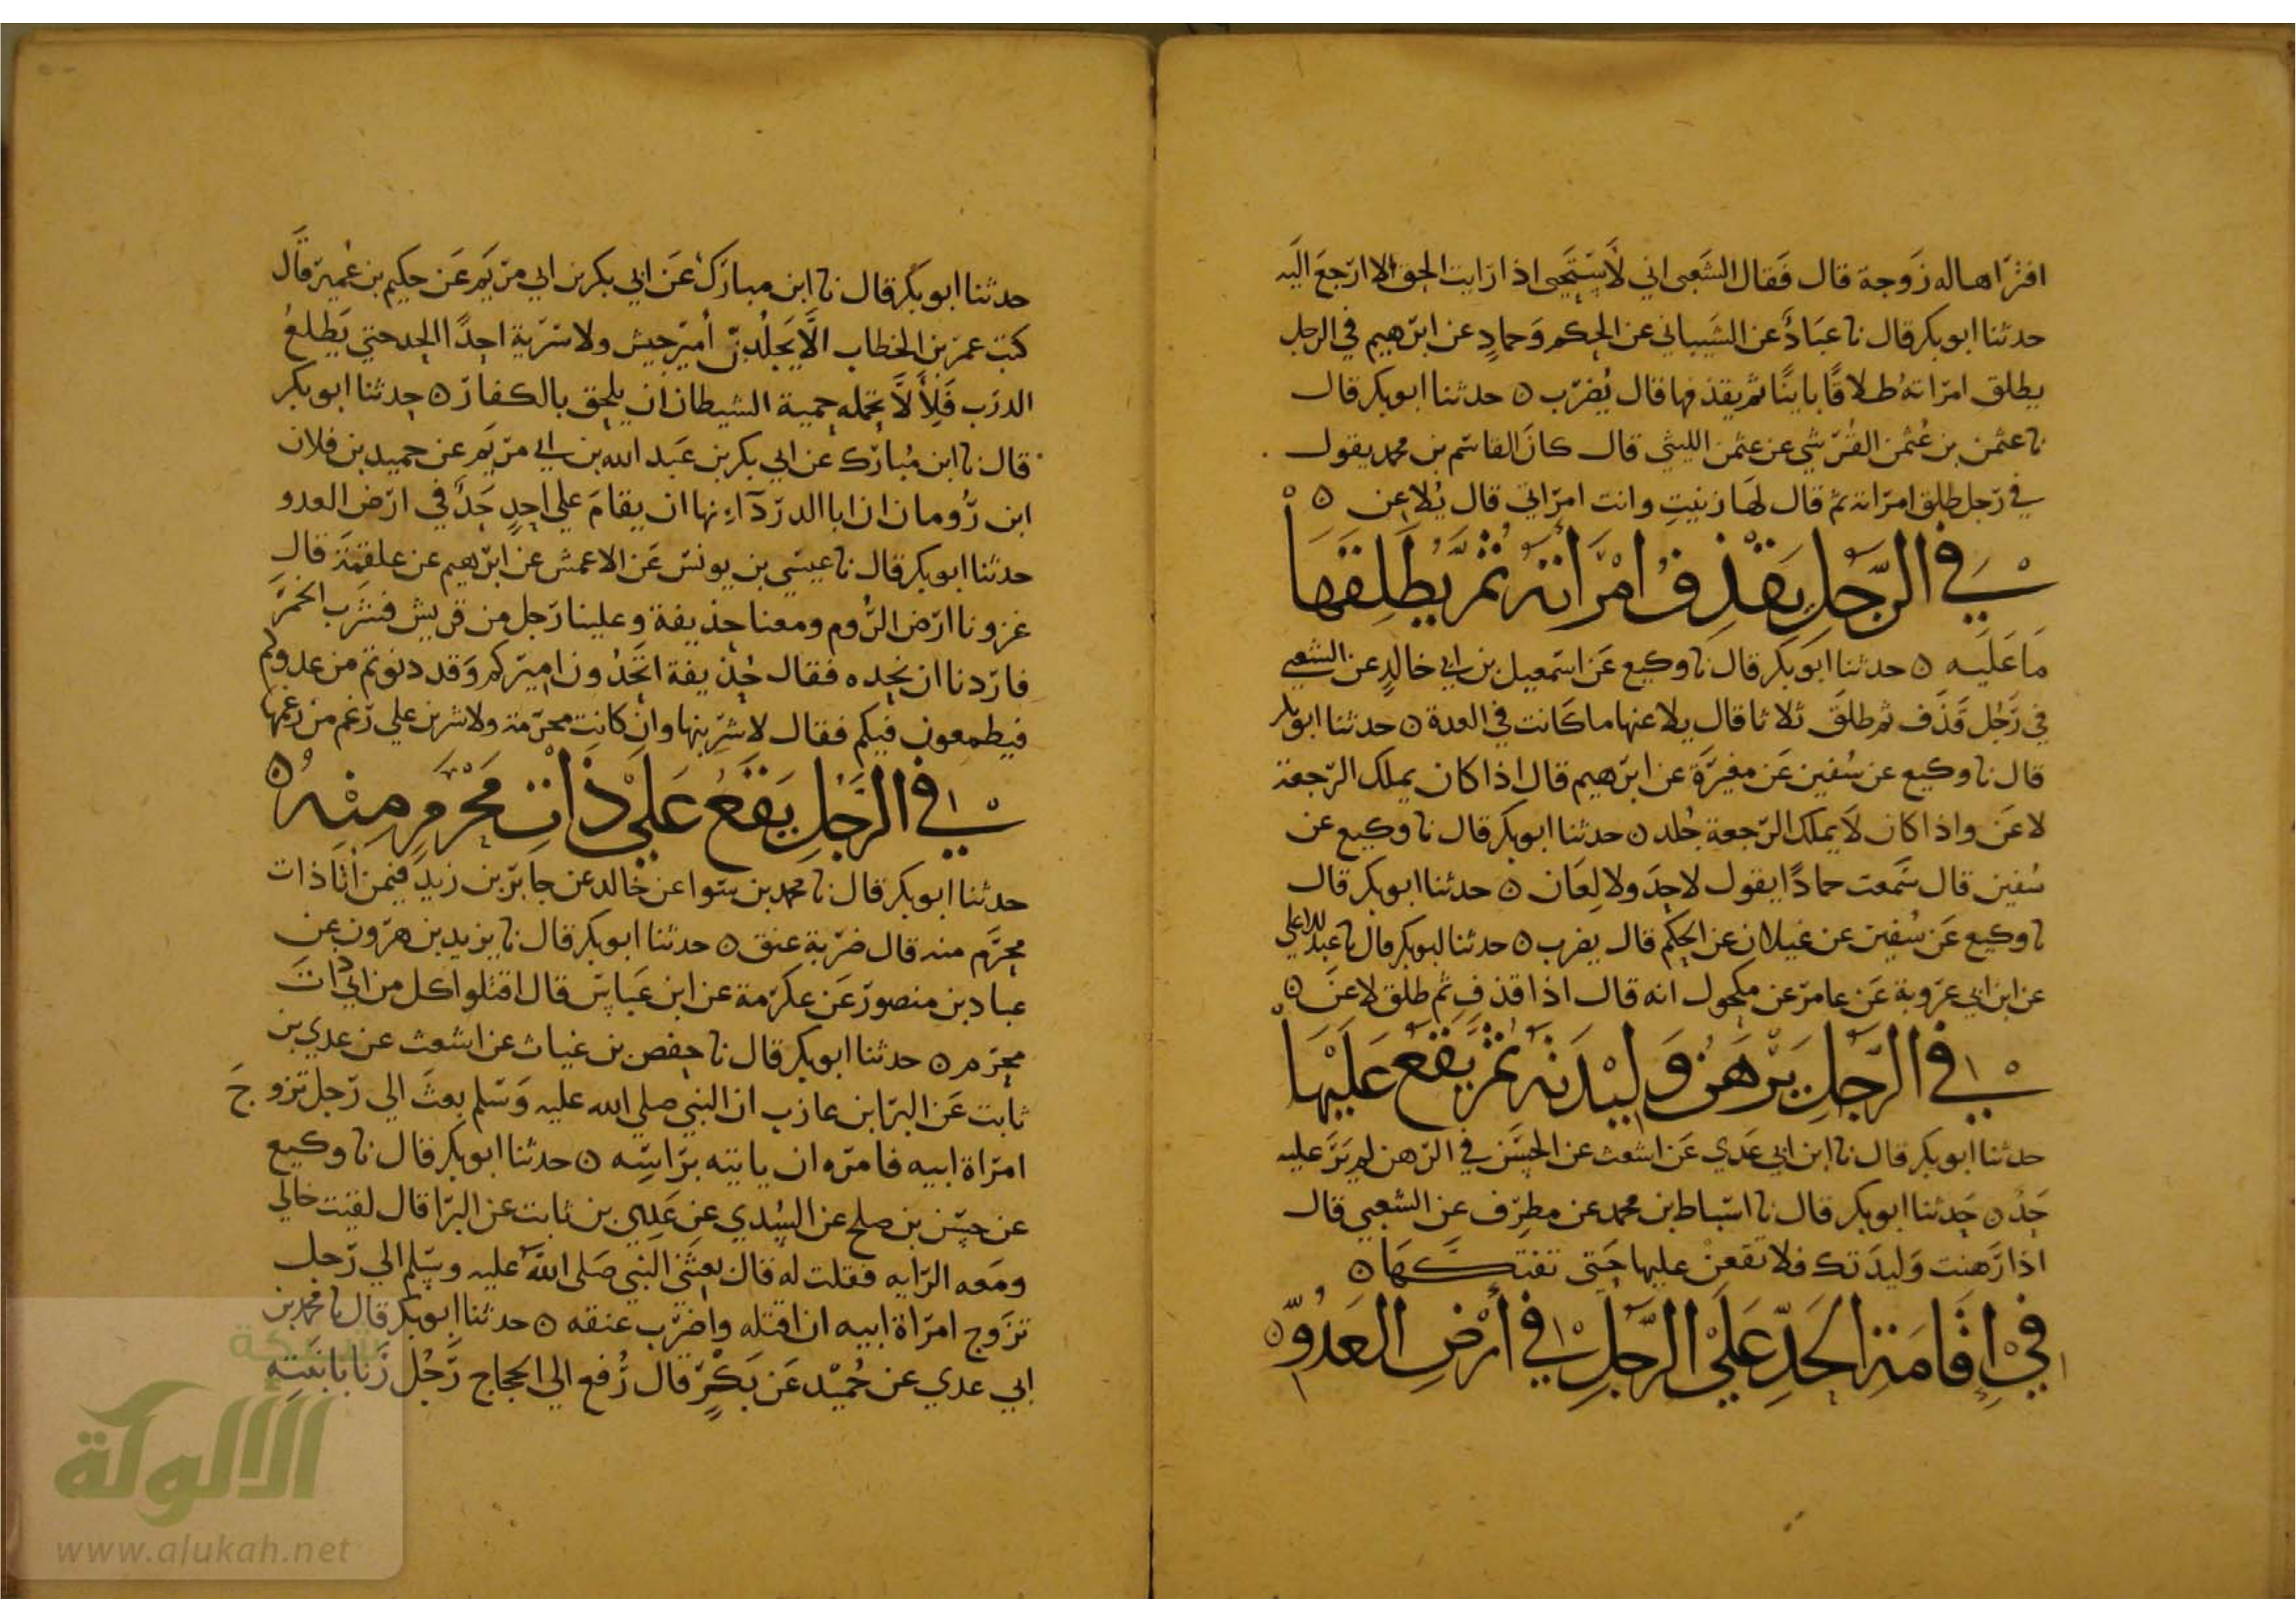 افتراها له زوجة قال فقال الشعبي اني لاستحيي اذا رايت الحق الا ارجع اليه
حدثنا ابو بكر قال نا عباد عن الشيباني عن الحكم وحماد عن ابرهيم في الرجل
يطلق امراته طلاقا باينا ثم يقذفها قال يضرب ه حدثنا ابو بكر قال
نا عثمن بن عثمن القرشي عن عثمن الليثي قال كان القاسم بن محمد يقول
في رجل طلق امراته ثم قال لها زنيت وانت امراتي قال يلاعن ه
في الرجل يقذف امراته ثم يطلقها
ما عليه ه حدثنا ابو بكر قال نا وكيع عن اسمعيل بن ابي خالد عن الشعبي
في رجل قذف ثم طلق ثلاثا قال يلاعنها ما كانت في العدة ه حدثنا ابو بكر
قال نا وكيع عن سفين عن مغيرة عن ابرهيم قال اذا كان يملك الرجعة
لاعن واذا كان لا يملك الرجعة جلد ه حدثنا ابو بكر قال نا وكيع عن
سفين قال سمعت حمادا يقول لا حد ولا لعان ه حدثنا ابو بكر قال
نا وكيع عن سفين عن غيلان عن الحكم قال يضرب ه حدثنا ابو بكر قال نا عبد الاعلي
عن ابن ابي عروبة عن عامر عن مكحول انه قال اذا قذف ثم طلق لاعن ه
في الرجل يرهن وليدته ثم يقع عليها
حدثنا ابو بكر قال نا ابن ابي عدي عن اشعث عن الحسن في الرهن لم ير عليه
حد ه حدثنا ابو بكر قال نا اسباط بن محمد عن مطرف عن الشعبي قال
اذا رهنت وليدتك فلا تقعن عليها حتى تفتكها ه
في اقامة الحد علي الرجل في أرض العدو ه
حدثنا ابو بكر قال نا ابن مبارك عن ابي بكر بن ابي مريم عن حكيم بن عمير قال
كتب عمر بن الخطاب الا يجلدن أمير جيش ولا سرية احدا الحد حتي يطلع
الدرب فلأ لا تحمله حمية الشيطان ان يلحق بالكفار ه حدثنا ابو بكر
قال نا ابن مبارك عن ابي بكر بن عبد الله بن ابي مريم عن حميد بن فلان
ابن رومان ان ابا الدرداء نها ان يقام علي احد حد في ارض العدو
حدثنا ابو بكر قال نا عيسي بن يونس عن الاعمش عن ابرهيم عن علقمة قال
غزونا ارض الروم ومعنا حذيفة وعلينا رجل من قريش فشرب الخمر
فاردنا ان نحده فقال حذيفة اتحدون اميركم وقد دنوتم من عدوكم
فيطمعون فيكم فقال لاشربنها وان كانت محرمة ولاشربن علي رغم من رغمها
في الرجل يقع علي ذات محرم منه ه
حدثنا ابو بكر قال نا محمد بن سوا عن خالد عن جابر بن زيد فيمن أتا ذات
محرم منه قال ضربة عنق ه حدثنا ابو بكر قال نا يزيد بن هرون عن
عباد بن منصور عن عكرمة عن ابن عباس قال اقتلوا كل من اتي ذات
محرم ه حدثنا ابو بكر قال نا حفص بن غياث عن اشعث عن عدي بن
ثابت عن البرا بن عازب ان النبي صلي الله عليه وسلم بعث الي رجل تزوج
امراة ابيه فامره ان ياتيه براسه ه حدثنا ابو بكر قال نا وكيع
عن حسن بن صلح عن السدي عن عدي بن ثابت عن البرا قال لقيت خالي
ومعه الرايه فقلت له قال بعثني النبي صلى الله عليه وسلم الي رجل
تزوج امراة ابيه ان اقتله واضرب عنقه ه حدثنا ابو بكر قال نا محمد بن
ابي عدي عن حميد عن بكر قال رفع الي الحجاج رجل زنا بابنته
شبكة
الألوكة
www.alukah.net